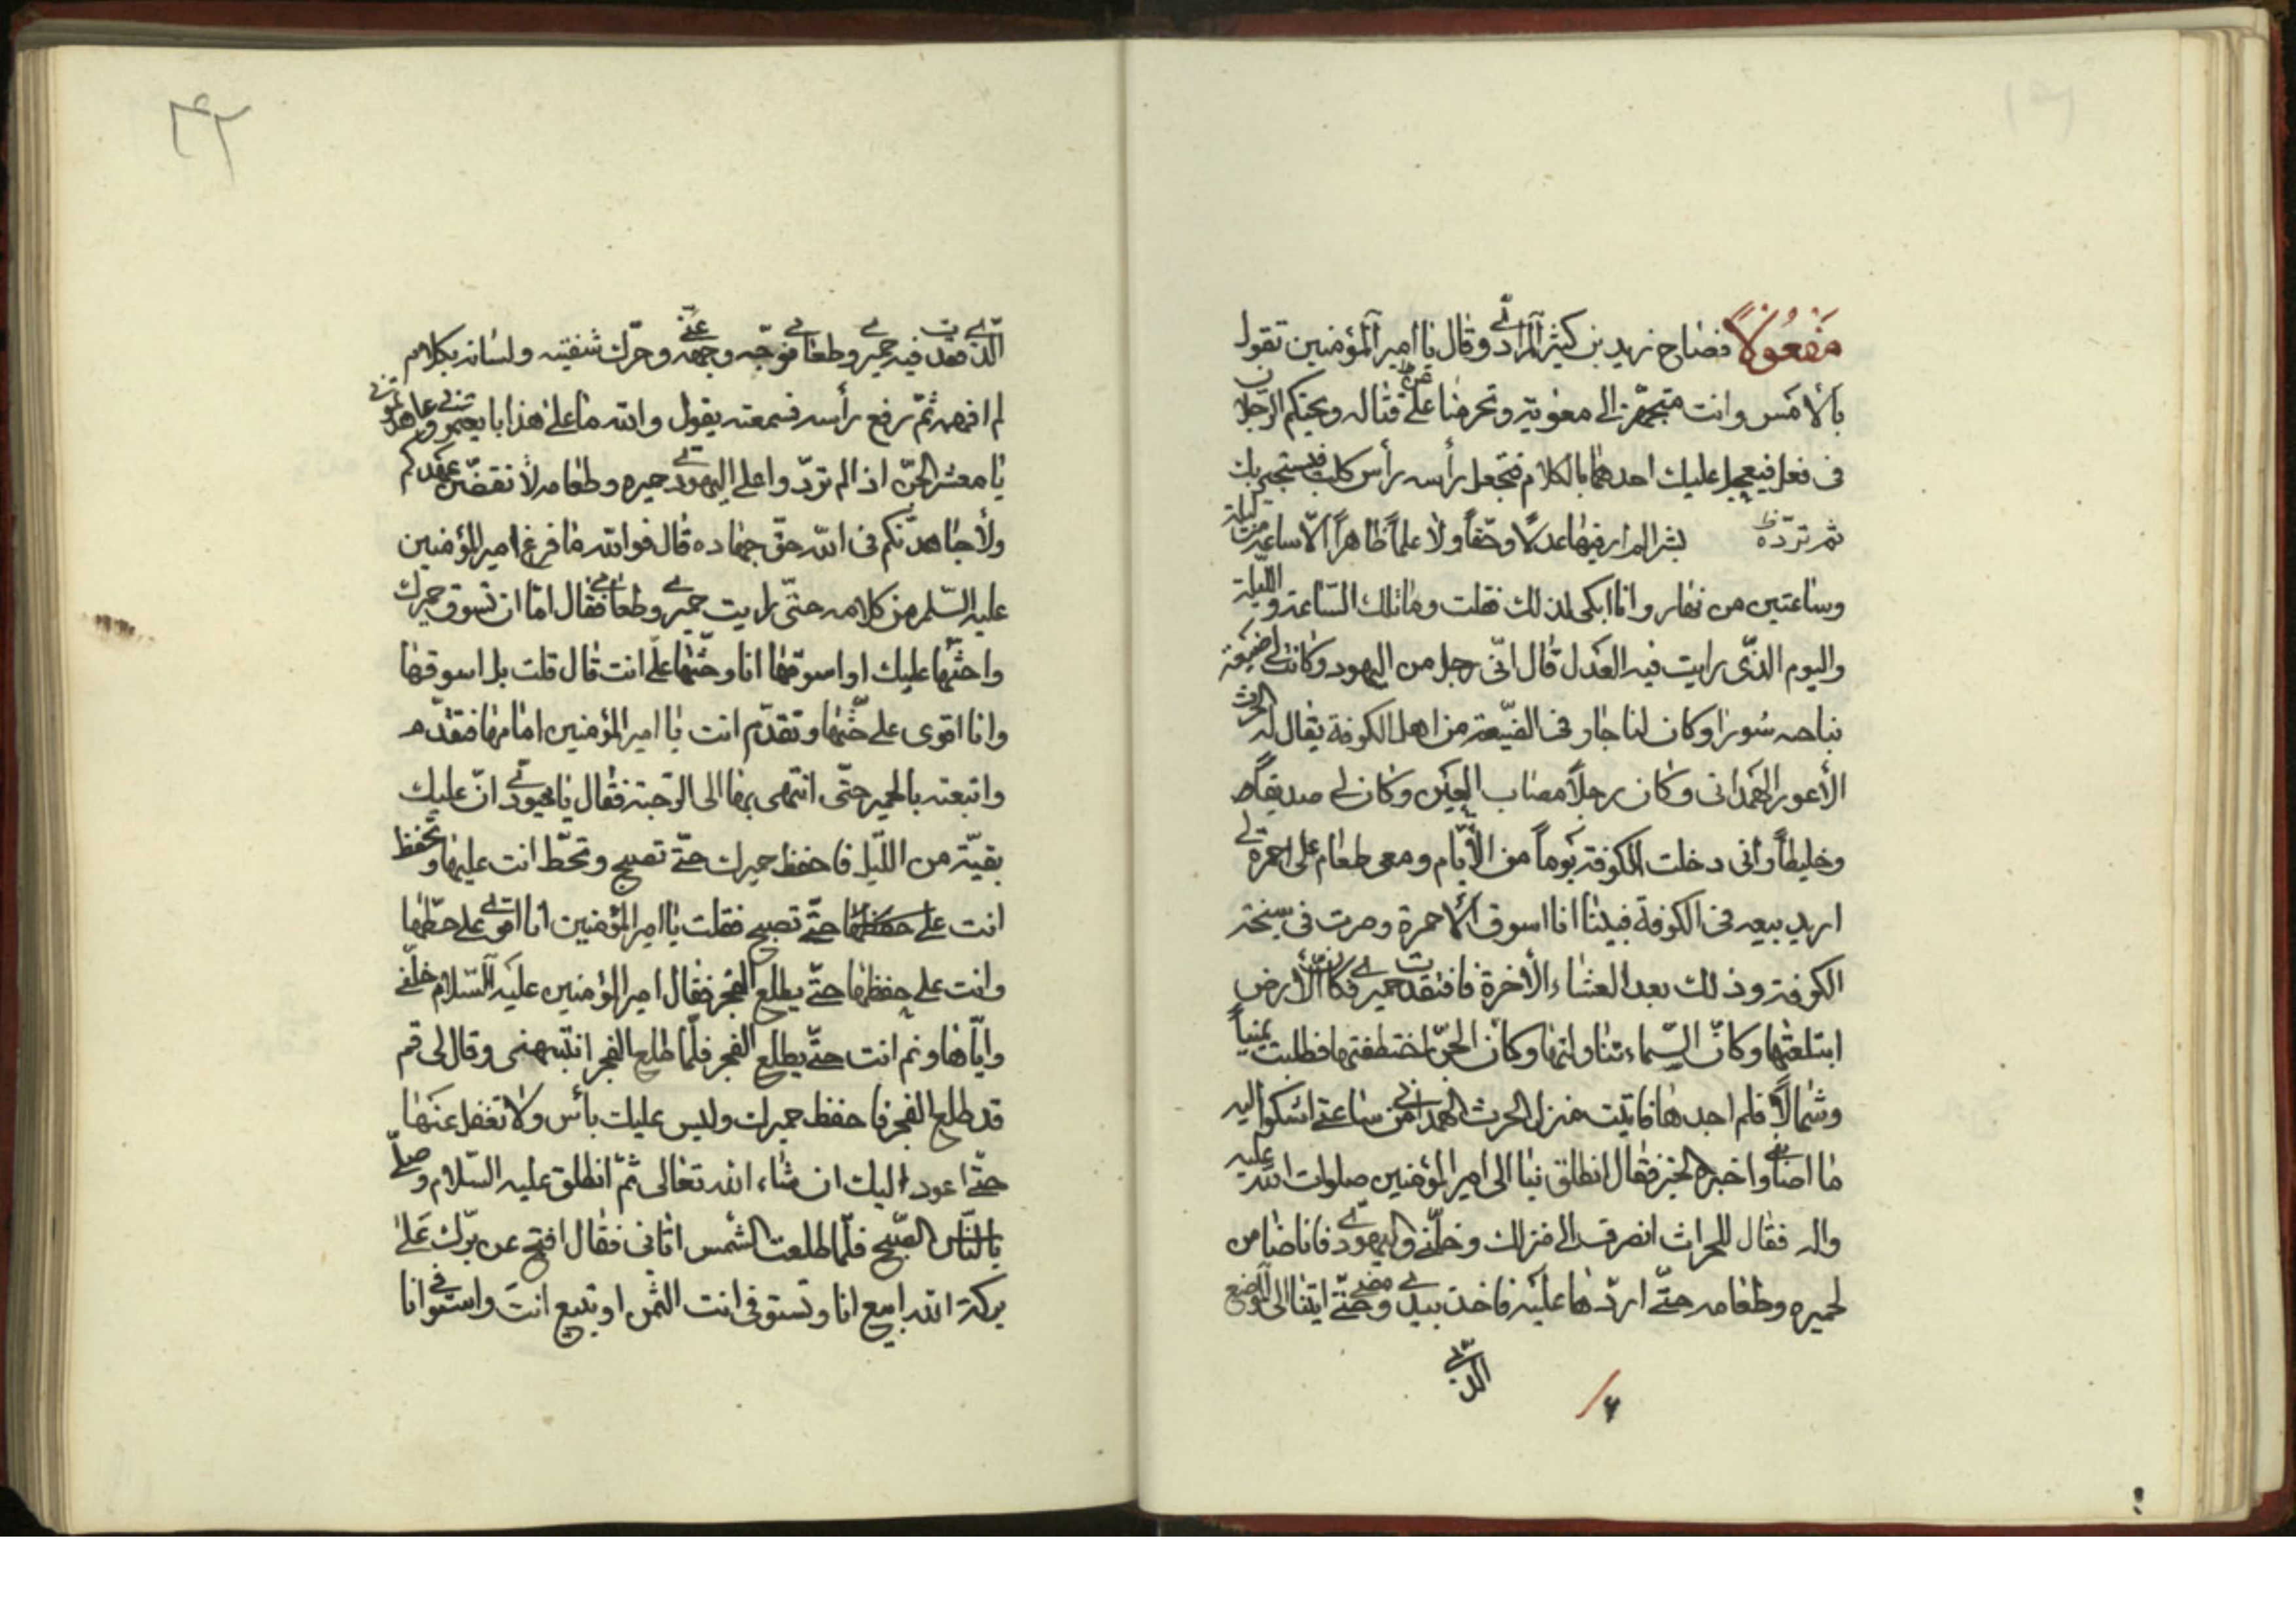 مَفْعُولاً فصاح زيد بن كثير المرادي وقال يا امير المؤمنين تقول
بالأمس وانت متجهّز الى معوية وتحرضنا على قتاله ويحتكم الرجلان
فى فعل فيعجل عليك احدهما بالكلام فتجعل رأسه رأس كلب فيستجير بك
ثم تردّه بشر المرار فيها عدلاً وحقاً ولا علماً ظاهراً الّا ساعة من ليلة
وساعتين من نهار وانا ابكى لذلك فقلت وما تلك الساعة والليلة
واليوم الذّى رايت فيه العدل قال انّى رجل من اليهود وكانت لى ضيعة
بناحيه سُورا وكان لنا جار فى الضّيعة من اهل الكوفة يقال له الحرث
الأعور الهمدانى وكان رجلاً مصاب العين وكان لى صديقاً
وخليطاً وانى دخلت الكوفة يوماً من الأيّام ومعى طعام على احمرة لى
اريد بيعه فى الكوفة فبينا انا اسوق الأحمرة وصرت فى سبخة
الكوفة وذلك بعد العشاء الأخرة فافتقدت حميرى فكانّ الأرض
ابتلعتها وكانّ السّماء تناولتها وكان الجنّ اختطفتها فطلبت يميناً
وشمالاً فلم اجدها فاتيت منزل الحرث الهمدانى من ساعتى اشكوا اليه
ما اصابنى واخبره الخبر فقال انطلق بنا الى امير المؤمنين صلوات الله عليه
واله فقال للحراث انصرف الى منزلك وخلّنى واليهودى فانا ضامن
لحميره وطعامه حتّى اردّها عليه فاخذ بيدى ومضى حتّى اتينا الى الموضع
الذى
۴۲
الذى فقدت فيه حميرى وطعامى فوجّه وجهه عنّى وحرّك شفتيه ولسانه بكلام
لم افهمه ثمّ رفع رأسه فسمعته يقول والله ما على هذا بايعتمونى وعاهدتمونى
يا معشر الجنّ اذا لم تردّوا على اليهودى حميره وطعامه لأنقضّن عهدكم
ولأجاهدنّكم فى الله حقّ جهاده قال فوالله ما فرغ امير المؤمنين
عليه السّلم من كلامه حتّى رايت حميرى وطعامى فقال امّا ان تسوق حميرك
واحثّها عليك او اسوقها انا وحثّها علىّ انت قال قلت بل اسوقها
وانا اقوى على حثّها وتقدّم انت يا امير المؤمنين امامها فتقدّم
واتبعته بالحمير حتّى انتهى بها الى الرّحبة فقال يا يهودى انّ عليك
بقيّة من اللّيل فاحفظ حميرك حتّى تصبح وتحطّ انت عليها وتحفظ
انت على حفظها حتّى تصبح فقلت يا امير المؤمنين انا اقوى على حطّها
وانت على حفظها حتّى يطلع الفجر فقال امير المؤمنين عليه السّلام خلّنى
وايّاها ونم انت حتّى يطلع الفجر فلمّا طلع الفجر انتبهنى وقال لى قم
قد طلع الفجر فاحفظ حميرك وليس عليك بأس ولا تغفل عنها
حتّى اعود اليك ان شاء الله تعالى ثمّ انطلق عليه السّلام وصلّى
بالنّاس الصّبح فلّما طلعت الشّمس اتانى فقال افتح عن برّك على
بركة الله ابيع انا وتستوفى انت الثمن او تبيع انت واستوفى انا